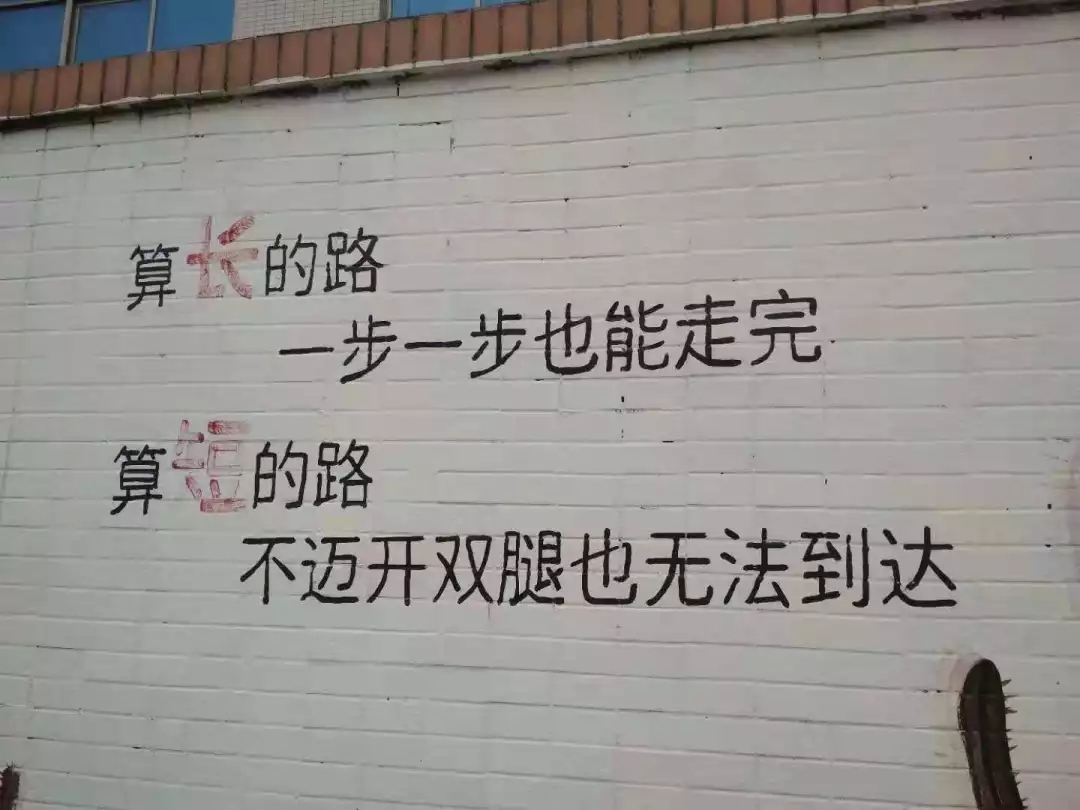 算长的路
一步一步也能走完
算短的路
不迈开双腿也无法到达